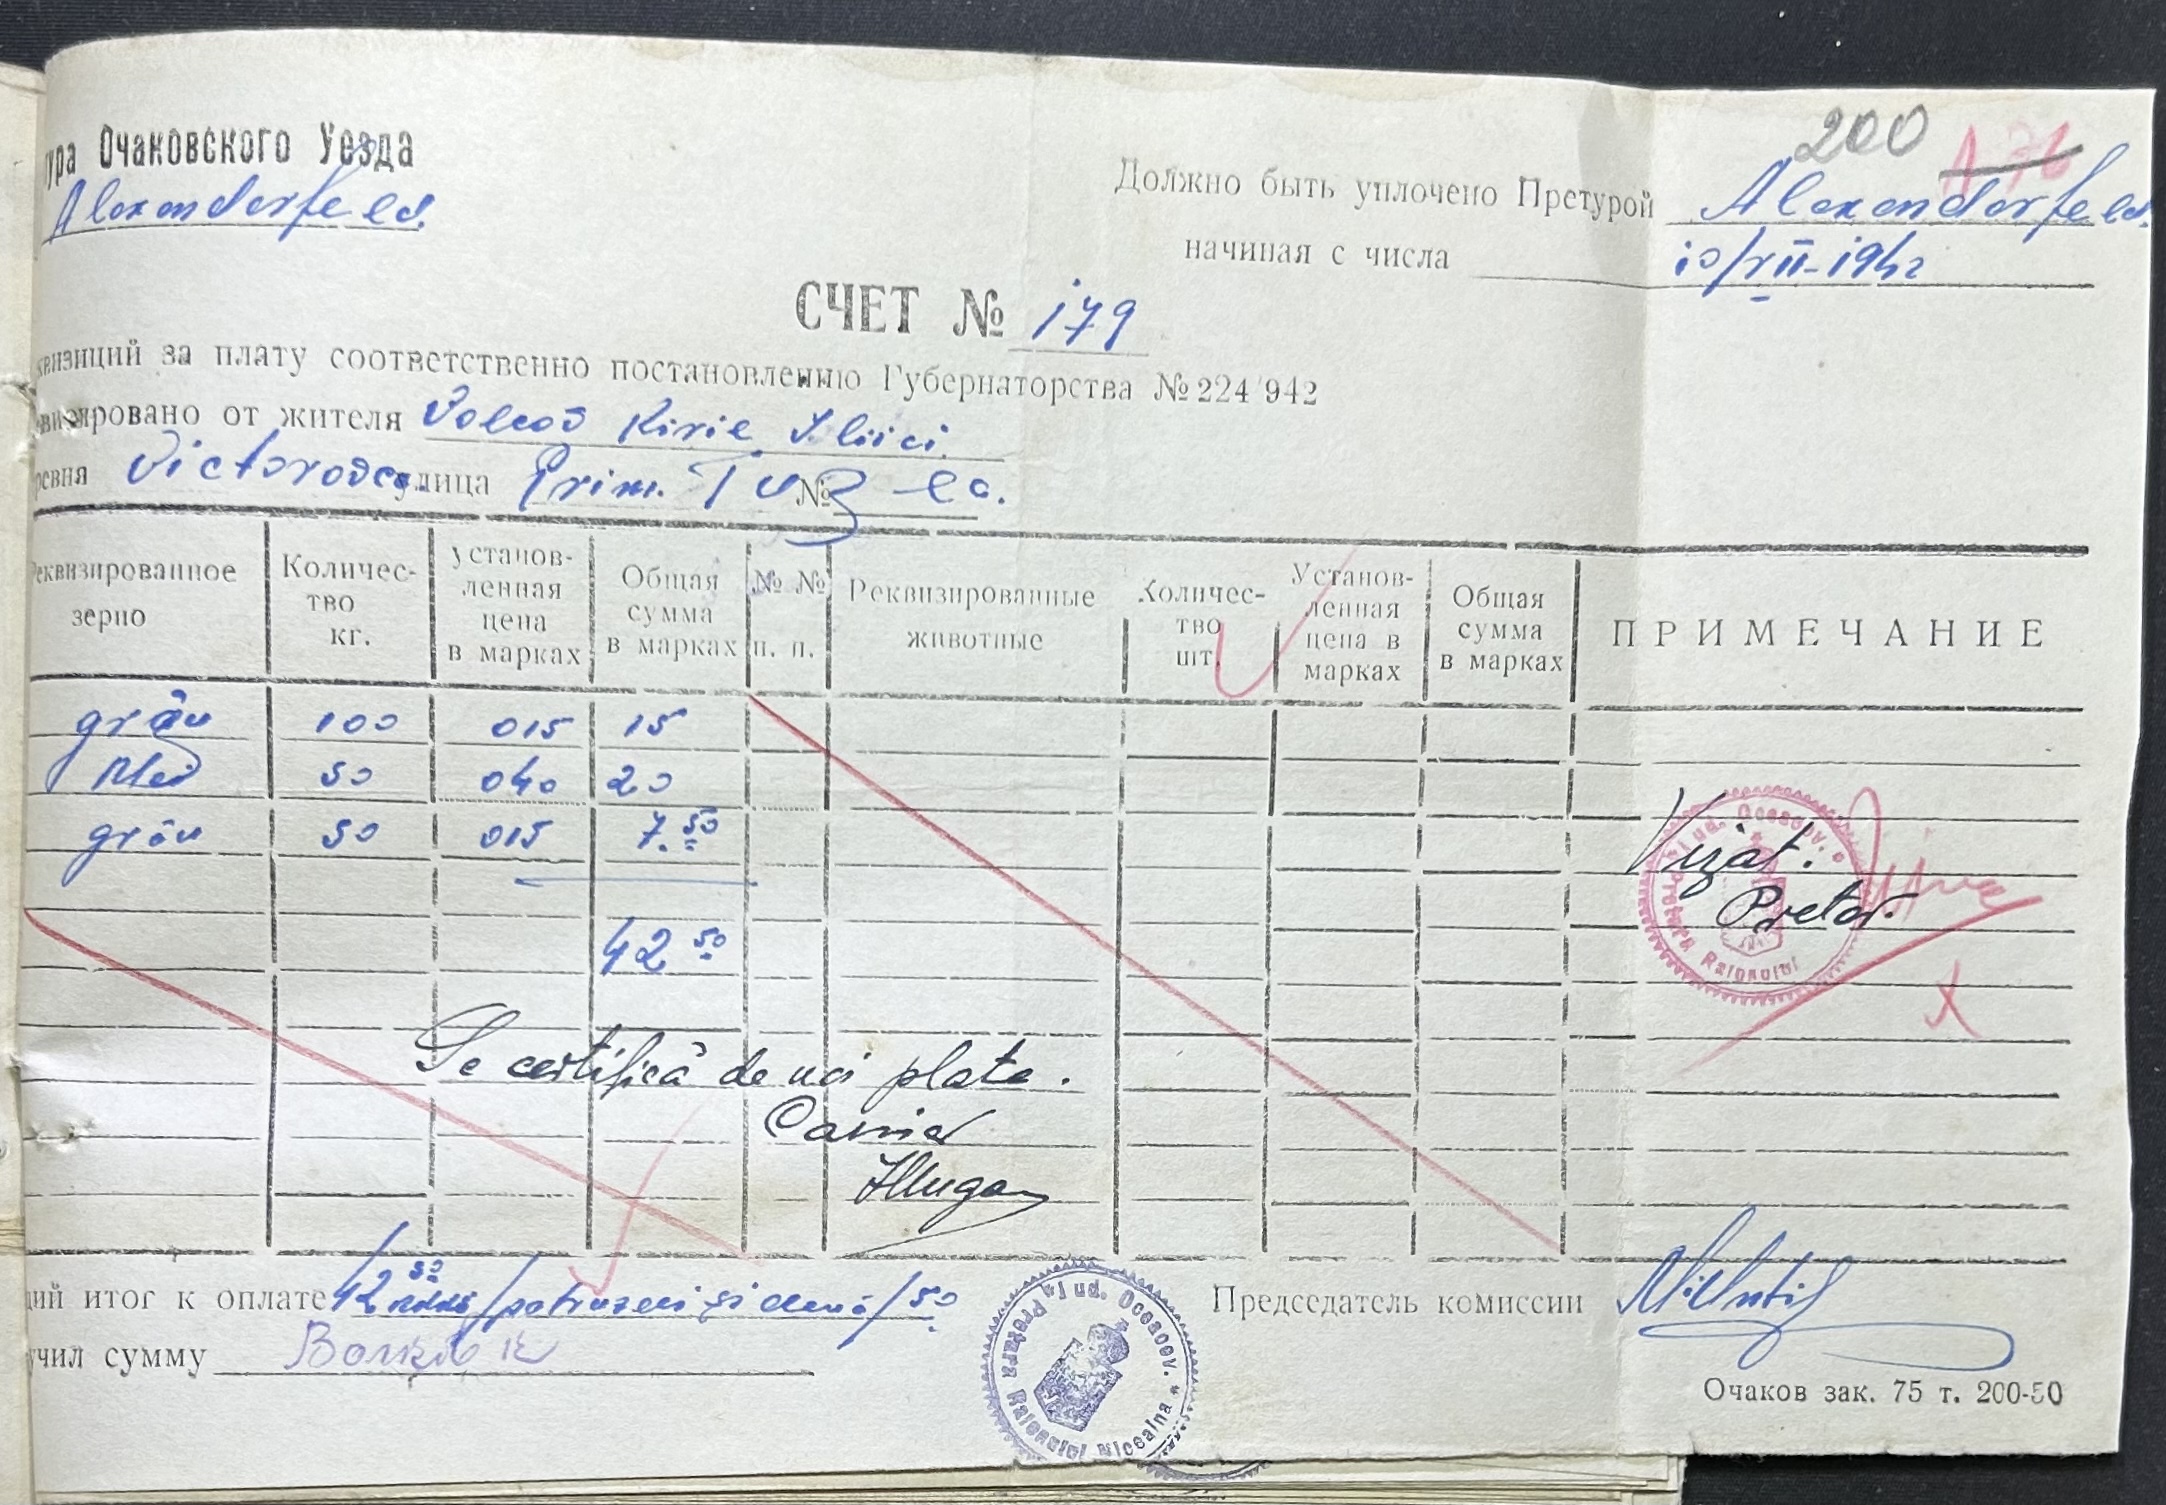 200 A 76
тура Очаковского Уезда
Alexandorfeld.
Должно быть уплочено Претурой Alexandorfeld.
начиная с числа 10/VII-1942
СЧЕТ № 179
квизиций за плату соответственно постановлению Губернаторства № 224/942
визировано от жителя Volcov Kirie Iliici.
ревня Victorovca. улица Prim. Tuz № la.
Реквизированное зерно
Количес-тво кг.
установ-ленная цена в марках
Общая сумма в марках
№ № п. п.
Реквизированные животные
Количес-тво шт.
Установ-ленная цена в марках
Общая сумма в марках
ПРИМЕЧАНИЕ
grâu 100 015 15
50 040 20
grâu 50 015 7.50
42 50
Vizat.
Pretor.
Jud. Oceacov. Pretura Raionului
Se certifică de noi plata.
Casier
щий итог к оплате 42 50 /patruzeci și două/50
учил сумму Волков К
Jud. Oceacov. * Pretura Raionului
Председатель комиссии
Очаков зак. 75 т. 200-50